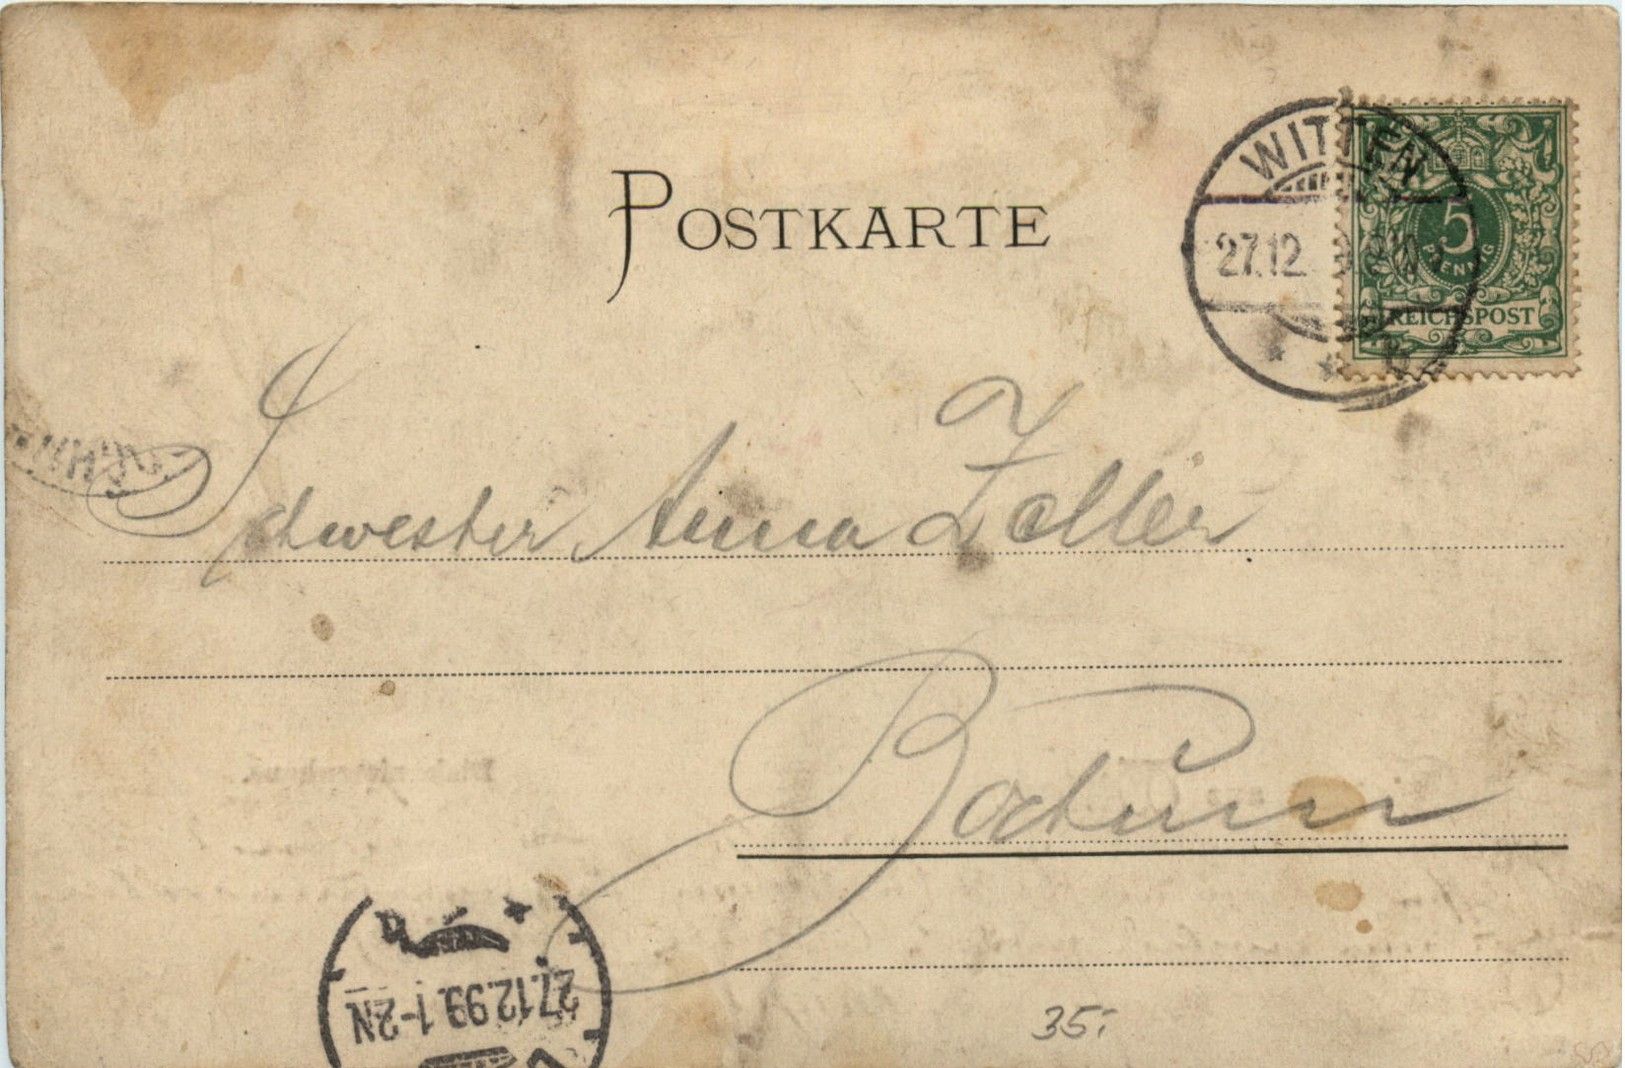 POSTKARTE
WITTEN
27.12.
5
PFENNIG
REICHSPOST
Schwester Anna Zeller
Bochum
27.12.99.1-2N
35.-